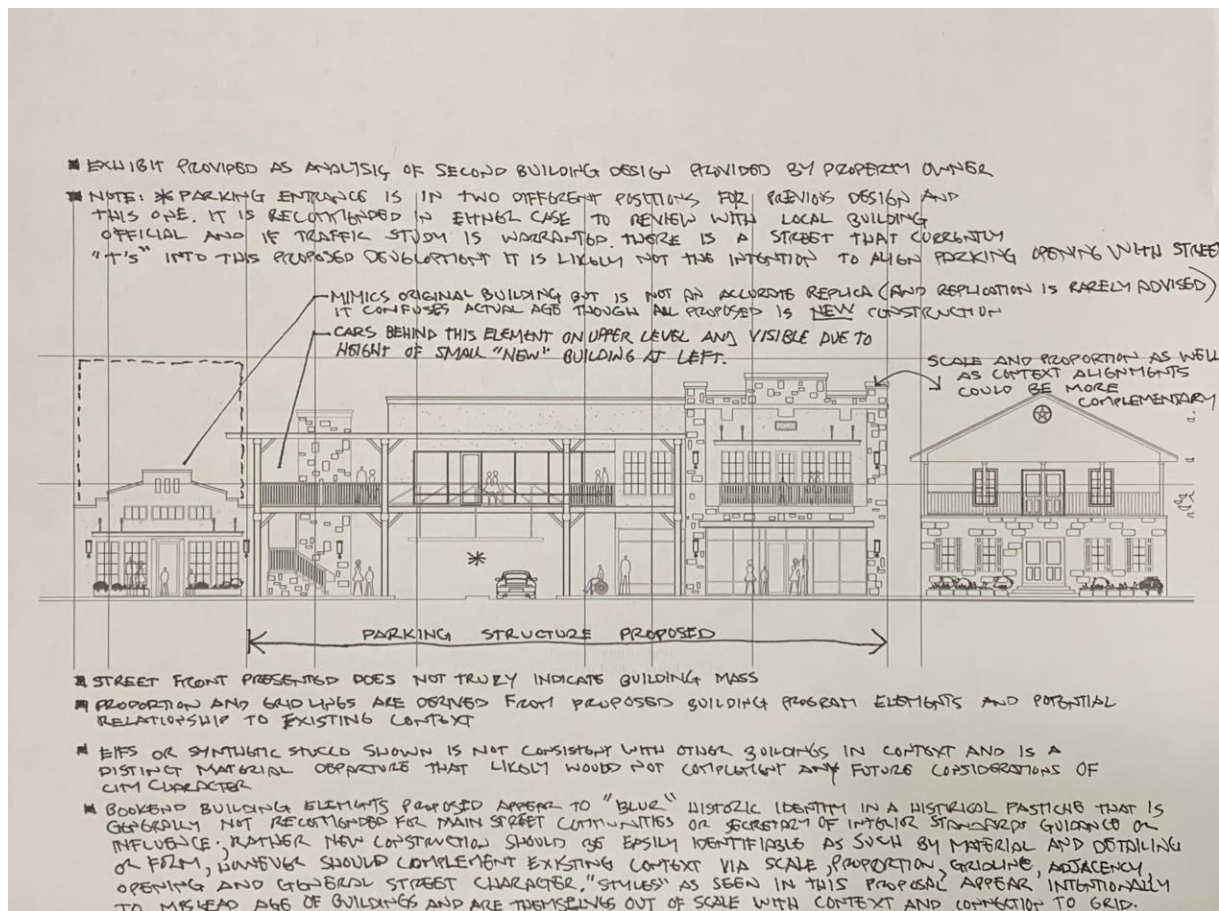 ■ EXHIBIT PROVIDED AS ANALYSIS OF SECOND BUILDING DESIGN PROVIDED BY PROPERTY OWNER
■ NOTE: * PARKING ENTRANCE IS IN TWO DIFFERENT POSITIONS FOR PREVIOUS DESIGN AND
THIS ONE. IT IS RECOMMENDED IN EITHER CASE TO REVIEW WITH LOCAL BUILDING
OFFICIAL AND IF TRAFFIC STUDY IS WARRANTED. THERE IS A STREET THAT CURRENTLY
"T'S" INTO THIS PROPOSED DEVELOPMENT IT IS LIKELY NOT THE INTENTION TO ALIGN PARKING OPENING WITH STREET
MIMICS ORIGINAL BUILDING BUT IS NOT AN ACCURATE REPLICA (AND REPLICATION IS RARELY ADVISED)
IT CONFUSES ACTUAL AGE THOUGH ALL PROPOSED IS NEW CONSTRUCTION
CARS BEHIND THIS ELEMENT ON UPPER LEVEL AND VISIBLE DUE TO
HEIGHT OF SMALL "NEW" BUILDING AT LEFT.
SCALE AND PROPORTION AS WELL
AS CONTEXT ALIGNMENTS
COULD BE MORE
COMPLEMENTARY
*
PARKING STRUCTURE PROPOSED
■ STREET FRONT PRESENTED DOES NOT TRULY INDICATE BUILDING MASS
■ PROPORTION AND GRID LINES ARE DERIVED FROM PROPOSED BUILDING PROGRAM ELEMENTS AND POTENTIAL
RELATIONSHIP TO EXISTING CONTEXT
■ EIFS OR SYNTHETIC STUCCO SHOWN IS NOT CONSISTENT WITH OTHER BUILDINGS IN CONTEXT AND IS A
DISTINCT MATERIAL DEPARTURE THAT LIKELY WOULD NOT COMPLEMENT ANY FUTURE CONSIDERATIONS OF
CITY CHARACTER
■ BOOKEND BUILDING ELEMENTS PROPOSED APPEAR TO "BLUR" HISTORIC IDENTITY IN A HISTRICAL PASTICHE THAT IS
GENERALLY NOT RECOMMENDED FOR MAIN STREET COMMUNITIES OR SECRETARY OF INTERIOR STANDARDS GUIDANCE OR
INFLUENCE. RATHER NEW CONSTRUCTION SHOULD BE EASILY IDENTIFIABLE AS SUCH BY MATERIAL AND DETAILING
OR FORM, HOWEVER SHOULD COMPLEMENT EXISTING CONTEXT VIA SCALE, PROPORTION, GRIDLINE, ADJACENCY,
OPENING AND GENERAL STREET CHARACTER. "STYLES" AS SEEN IN THIS PROPOSAL APPEAR INTENTIONALLY
TO MISLEAD AGE OF BUILDINGS AND ARE THEMSELVES OUT OF SCALE WITH CONTEXT AND CONNECTION TO GRID.